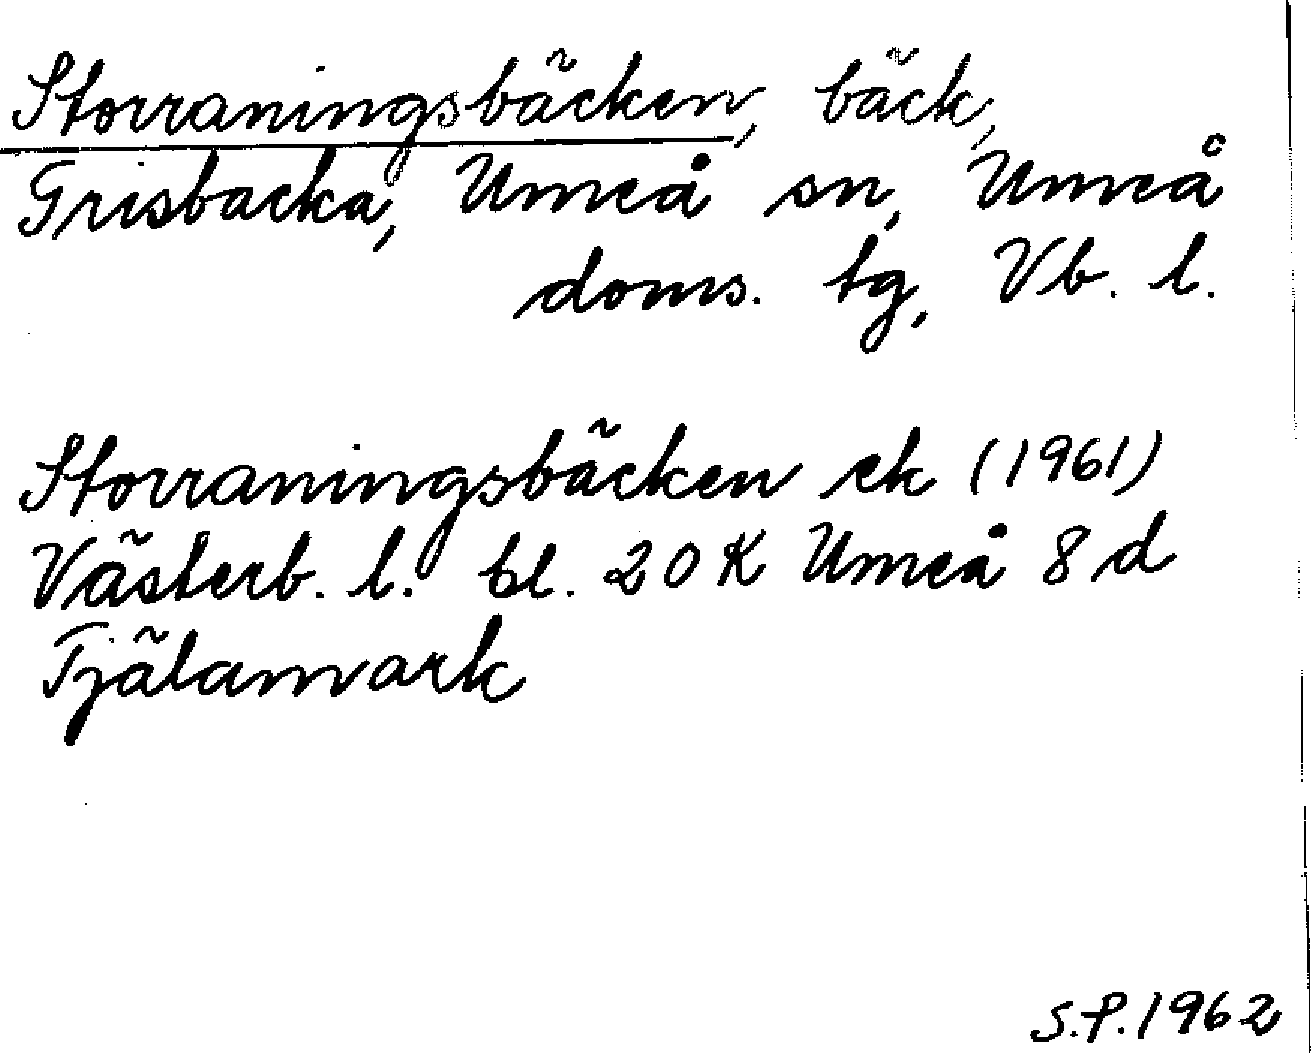 Storraningsbäcken, bäck,
Grisbacka, Umeå sn, Umeå
doms. tg, Vb. l.
Storraningsbäcken ek (1961)
Västerb. l. bl. 20 K Umeå 8 d
Tjälamark
S.P. 1962